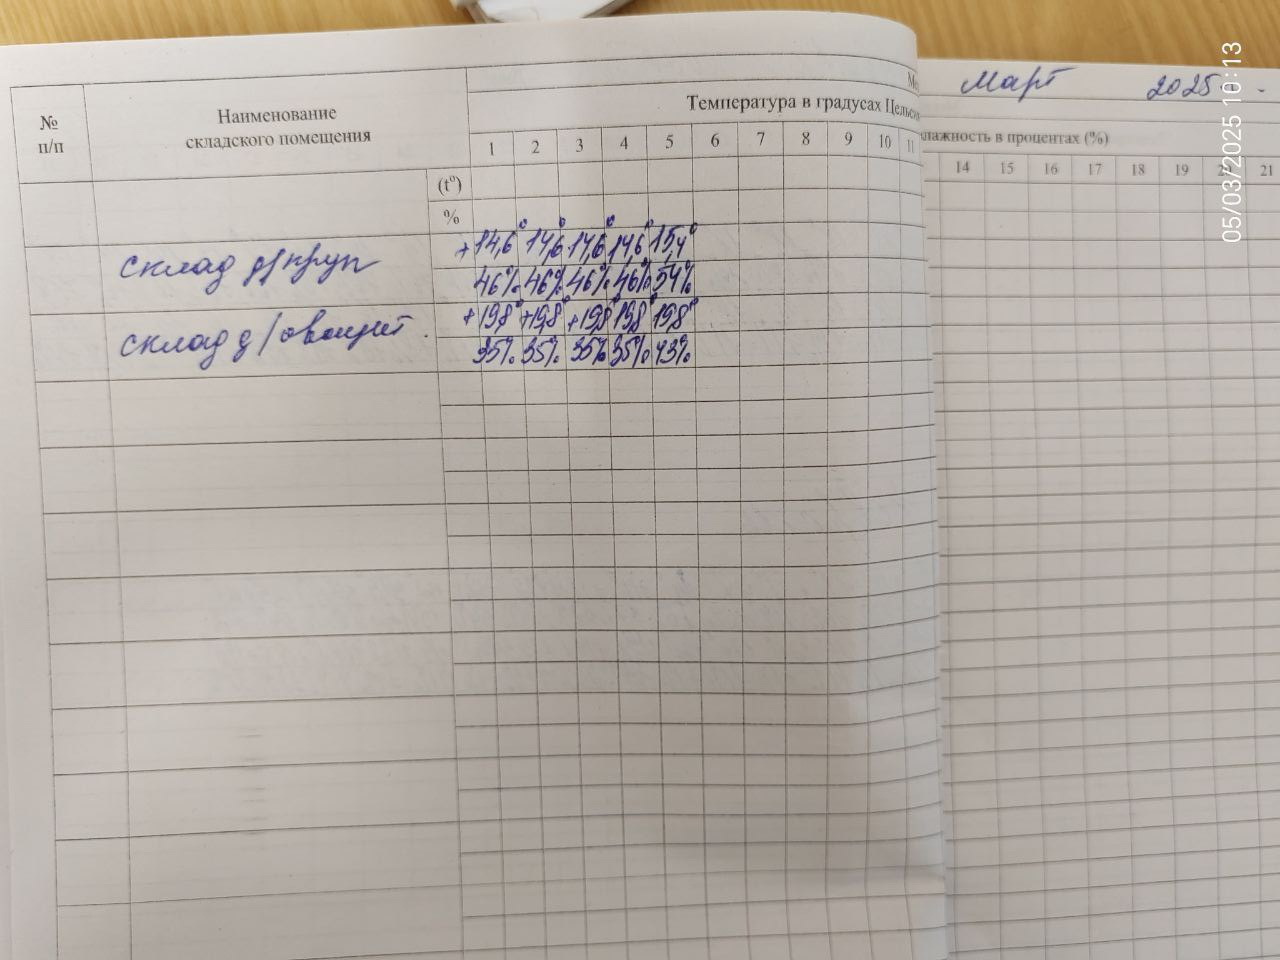 Март 2025
05/03/2025 10:13
№ п/п
Наименование складского помещения
Температура в градусах Цельси
влажность в процентах (%)
1 2 3 4 5 6 7 8 9 10 11
14 15 16 17 18 19 20 21
(t°)
%
склад д/круп
+14,6° 14,6° 14,6° 14,6° 15,4°
46% 46% 46% 46% 54%
склад д/овощей
+19,8° +19,8° +19,8° 19,8° 19,8°
35% 35% 35% 35% 43%